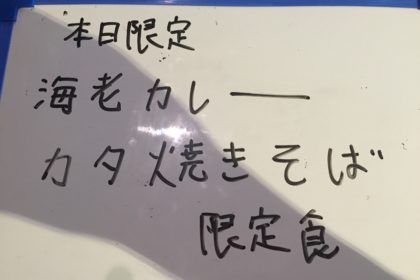 本日限定
海老カレー
カタ焼きそば
限定食